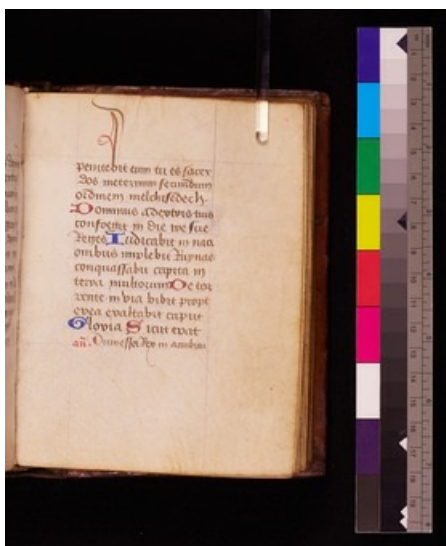 penitebit eum tu es sacer
dos ineternum secundum
ordinem melchisedech.
Dominus adextris tuis
confregit in die ire sue
Reges Iudicabit in nati
onibus implebit Ruynas
conquassabit capita in
terra multorum De tor
rente in via bibit propt
erea exaltabit caput
Gloria Sicut erat
an. Dum esset Rex in accubitu